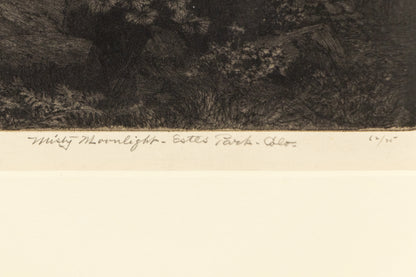 Misty Moonlight - Estes Park - Colo.